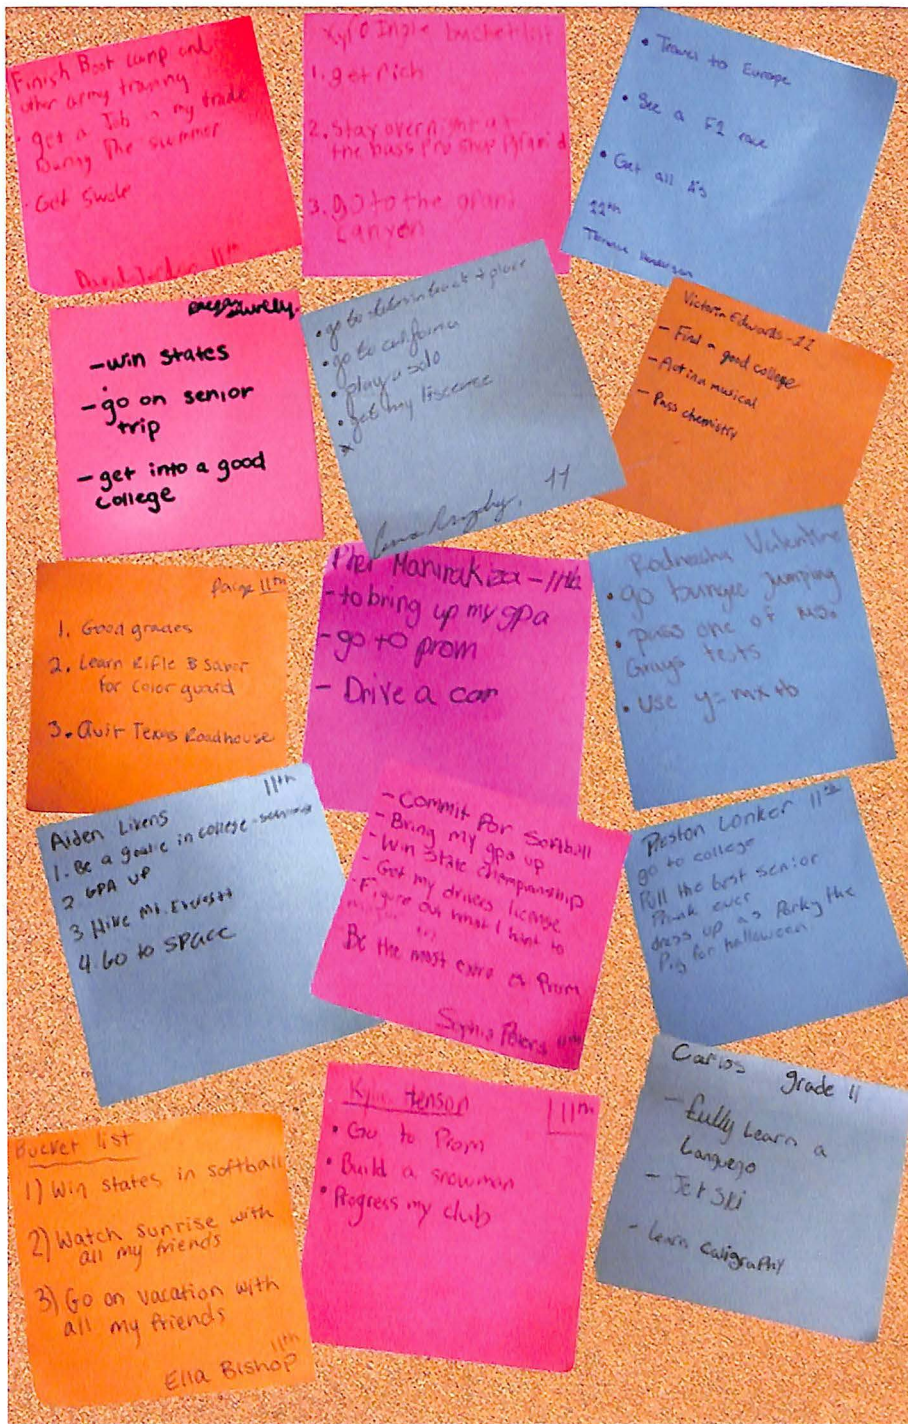 Finish Boot camp and
other army training
· get a Job in my trade
During the summer
· Get Swole
11th
Xyr'O Ingle bucket list
1. get rich
2. Stay overnight at
the bass pro shop Pyramid
3. go to the grant
Canyon
• Travel to Europe
• See a F1 race
• Get all A's
11th
Henderson
- win states
- go on senior
trip
- get into a good
college
• go to states in track + place
• go to california
• play a solo
• get my liscence
11
Victoria Edwards - 11
- Find a good college
- Act in a musical
- Pass chemistry
Paige 11th
1. Good grades
2. Learn Rifle & Saber
for color guard
3. Quit Texas Roadhouse
Manirakiza - 11th
- to bring up my gpa
- go to prom
- Drive a car
Valentine
• go bungee jumping
• pass one of Ms.
Grays tests
• Use y=mx+b
Aiden Likens 11th
1. Be a goalie in college
2 GPA UP
3 Hike Mt. Everestt
4. Go to SPACE
- Commit for Softball
- Bring my gpa up
- Win State championship
- Get my drivers license
- Figure out what I want to
Be the most extra at Prom
Sophia 11th
Peston Lonker 11th
go to college
Pull the best senior
Prank ever
dress up as Porky the
Pig for halloween
Bucket list
1) Win states in softball
2) Watch sunrise with
all my friends
3) Go on vacation with
all my friends
11th
Ella Bishop
11th
• Go to Prom
• Build a snowman
• Progress my club
Carlos grade 11
- fully Learn a
Languego
- Jet Ski
- Learn Caligraphy